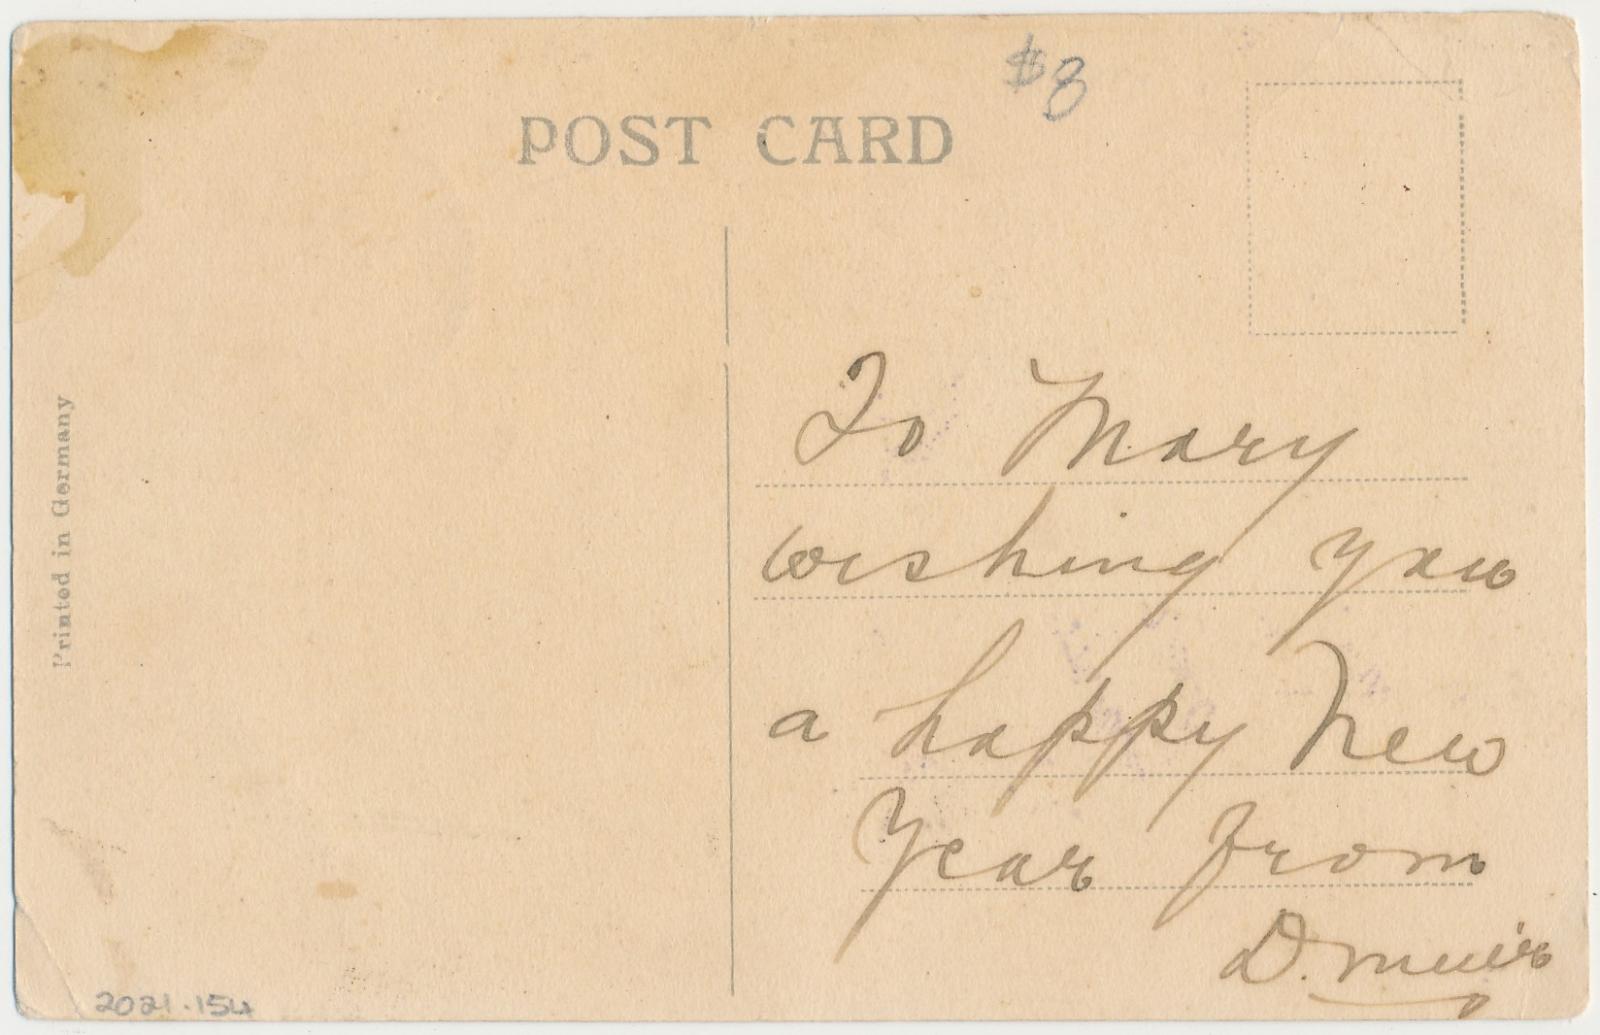 $8
POST CARD
Printed in Germany
To Mary
wishing you
a happy New
Year from
D. Muir
2021.154